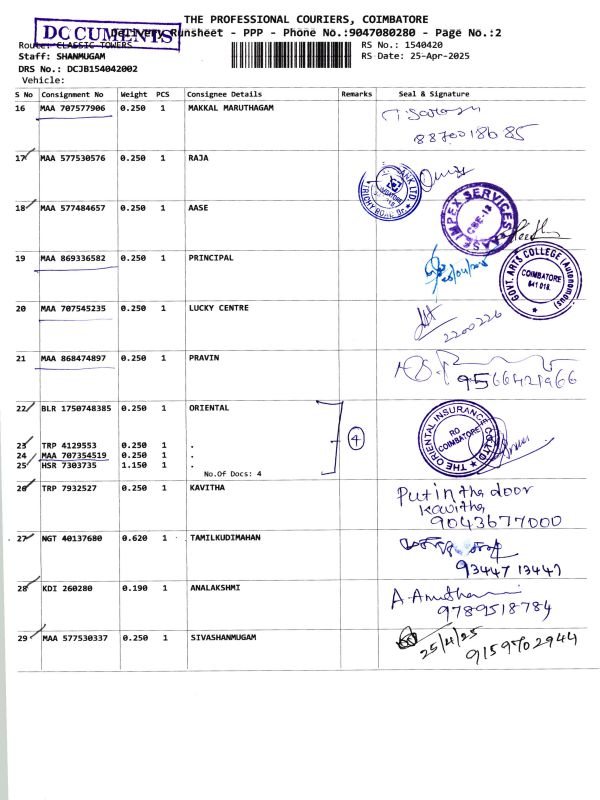 THE PROFESSIONAL COURIERS, COIMBATORE
DOCUMENTS
Delivery Runsheet - PPP - Phone No.:9047080280 - Page No.:2
Route: CLASSIC TOWERS
RS No.: 1540420
Staff: SHANMUGAM
RS Date: 25-Apr-2025
DRS No.: DCJB154042002
Vehicle:
S No Consignment No Weight PCS Consignee Details Remarks Seal & Signature
16 MAA 707577906 0.250 1 MAKKAL MARUTHAGAM
8870018685
17 MAA 577530576 0.250 1 RAJA
18 MAA 577484657 0.250 1 AASE
AASE IMPEX SERVICES
CBE-18
19 MAA 869336582 0.250 1 PRINCIPAL
GOVT. ARTS COLLEGE (Autonomous)
COIMBATORE
641 018.
20 MAA 707545235 0.250 1 LUCKY CENTRE
2200226
21 MAA 868474897 0.250 1 PRAVIN
9566421966
22 BLR 1750748385 0.250 1 ORIENTAL
THE ORIENTAL INSURANCE CO. LTD
RO
COIMBATORE
4
23 TRP 4129553 0.250 1 .
24 MAA 707354519 0.250 1 .
25 HSR 7303735 1.150 1 .
No.Of Docs: 4
26 TRP 7932527 0.250 1 KAVITHA
Put in the door
Kavitha
9043677000
27 NGT 40137680 0.620 1 TAMILKUDIMAHAN
93447 13447
28 KDI 260280 0.190 1 ANALAKSHMI
9789518784
29 MAA 577530337 0.250 1 SIVASHANMUGAM
25/4/25
9159702944